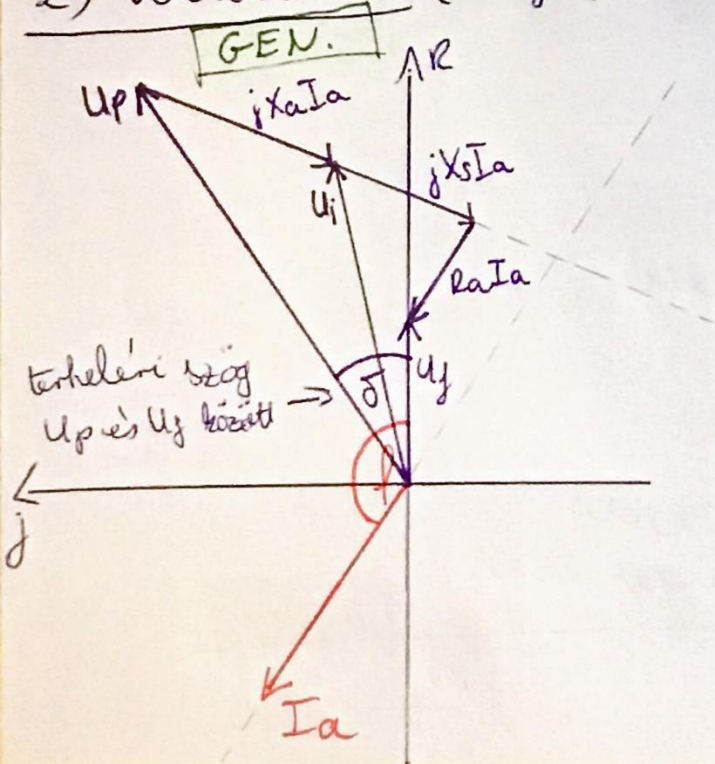 GEN.
R
Up
jXaIa
jXsIa
Ui
RaIa
terhelési szög
Up és Uf között
δ
Uf
φ
j
Ia